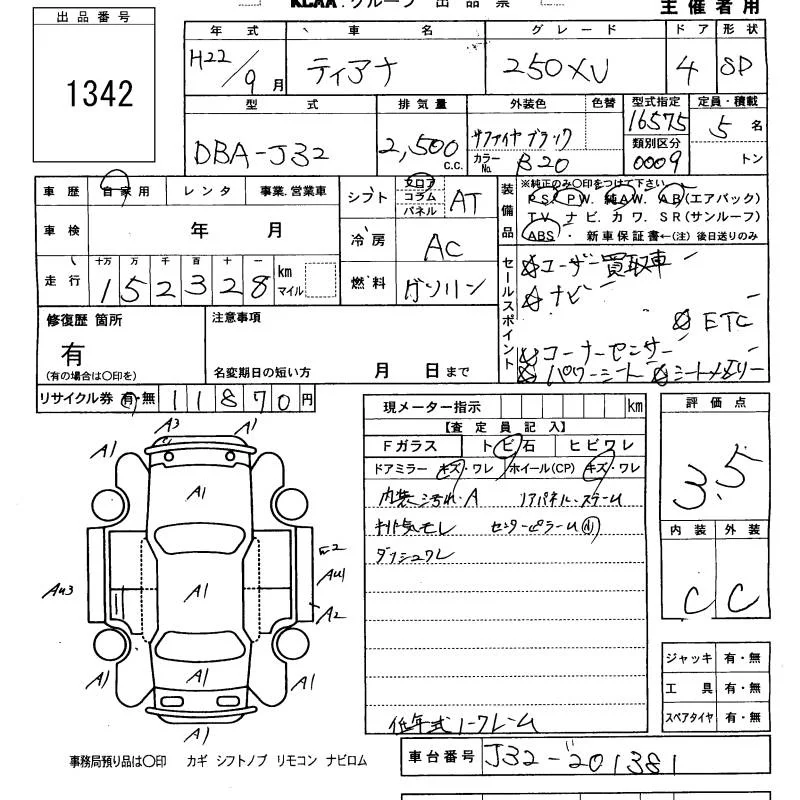 KCAA.グループ 出品票
主催者用
出品番号
1342
年式 車名 グレード ドア 形状
H22/9月 ティアナ 250XV 4 SD
型式 排気量 外装色 色替 型式指定 定員・積載
DBA-J32 2,500 C.C. サファイヤブラック 16575 5名
カラーNo. B20 類別区分 0009 トン
車歴 自家用 レンタ 事業.営業車
車検 年 月
走行 十万 万 千 百 十 一
152328 km マイル
シフト フロア コラム パネル AT
冷房 AC
燃料 ガソリン
装備品
※純正のみ〇印をつけて下さい
PS. PW. 純AW. AB(エアバック)
TV. ナビ. カワ. SR(サンルーフ)
ABS. 新車保証書←(注)後日送りのみ
セールスポイント
☆ユーザー買取車
☆ナビ
☆ETC
☆コーナーセンサー
☆パワーシート ☆シートメモリー
修復歴 箇所
有
(有の場合は〇印を)
注意事項
名変期日の短い方 月 日まで
リサイクル券 有・無 11870円
現メーター指示 km
【査定員記入】
Fガラス トビ石 ヒビワレ
ドアミラー キズ・ワレ ホイール(CP) キズ・ワレ
内装ヨゴレ・A リアパネル・スチーム
排気モレ センターピラーム A1
ダッシュワレ
低年式ノークレーム
評価点
3.5
内装 外装
C C
ジャッキ 有・無
工具 有・無
スペアタイヤ 有・無
A3
A1 A1
A1
E2
AU3 A1 AU1
A2
A1 A1 A1
A1
事務局預り品は〇印 カギ シフトノブ リモコン ナビロム
車台番号 J32-201381